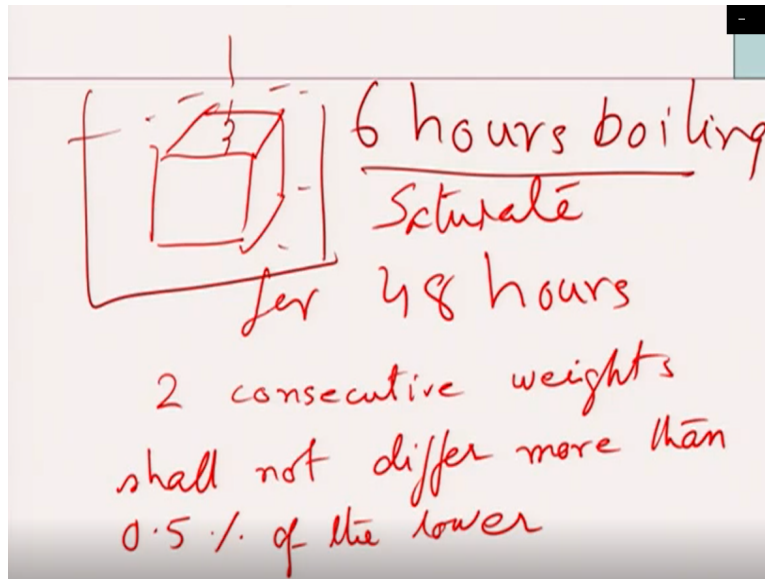 6 hours boiling
Saturate
for 48 hours
2 consecutive weights
shall not differ more than
0.5 % of the lower